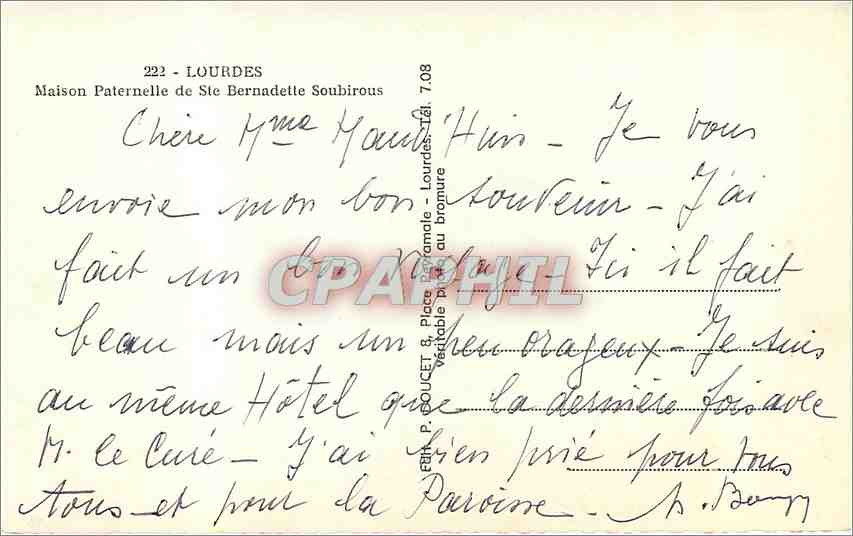 222 - LOURDES
Maison Paternelle de Ste Bernadette Soubirous
Chère Mme - Je vous
envoie mon bon souvenir - J'ai
fait un bon voyage - Ici il fait
beau mais un peu orageux - Je suis
au même Hôtel que la dernière fois avec
M. le Curé - J'ai bien prié pour vous
tous - et pour la Paroisse -
Edit. P. DOUCET 8, Place Peyramale - Lourdes. Tél. 7.08
véritable photo au bromure
CPAPHIL